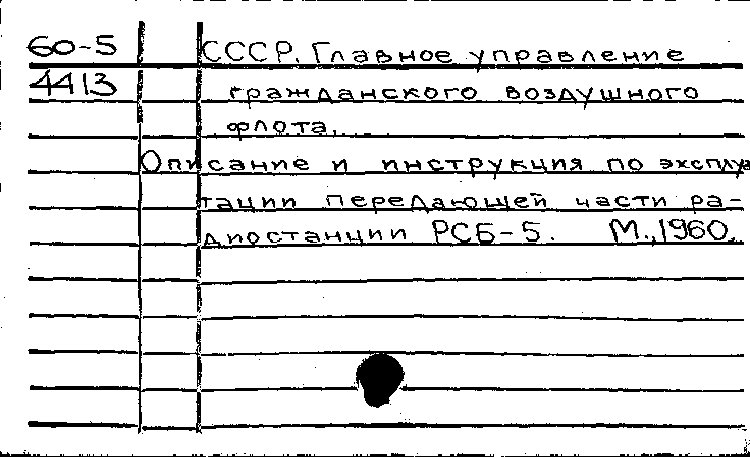 60-5 СССР. Главное управление
4413 гражданского воздушного
флота.
Описание и инструкция по эксплуа
тации передающей части ра-
диостанции РСБ-5. М., 1960.